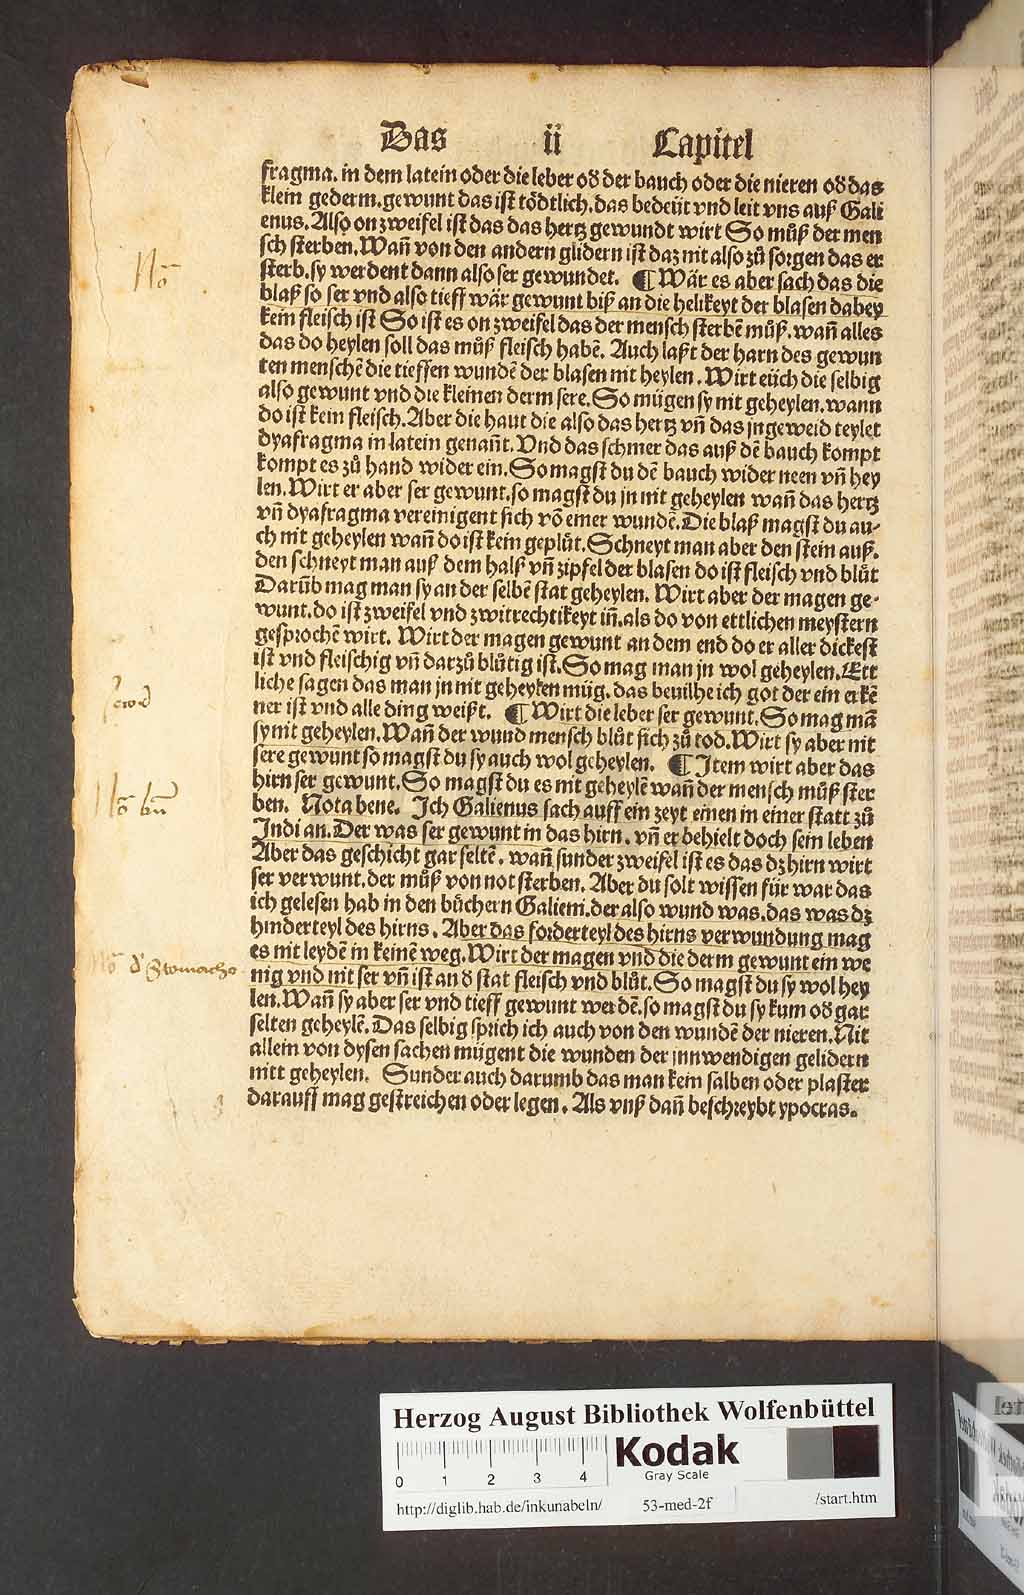 Das ii Capitel
fragma. in dem latein oder die leber od̕ der bauch oder die nieren od̕ das
klein gederm. gewunt das ist tödtlich. das bedeüt vnd leit vns auß Gali
enus. Also on zweifel ist das das hertz gewundt wirt So můß der men
sch sterben. Wañ von den andern glidern ist daz nit also zů sorgen das er
Nō
sterb. sy werdent dann also ser gewundet. ¶ Wär es aber sach das die
blaß so ser vnd also tieff wär gewunt biß an die helikeyt der blasen dabey
kein fleisch ist So ist es on zweifel das der mensch sterbē můß. wañ alles
das do heylen soll das můß fleisch habē. Auch laßt der harn des gewun
ten menschē die tieffen wundē der blasen nit heylen. Wirt eüch die selbig
also gewunt vnd die kleinen derm sere. So mügen sy nit geheylen. wann
do ist kein fleisch. Aber die haut die also das hertz vñ das jngeweid teylet
dyafragma in latein genañt. Vnd das schmer das auß dē bauch kompt
kompt es zů hand wider ein. So magst du dē bauch wider neen vñ hey
len. Wirt er aber ser gewunt. so magst du jn nit geheylen wañ das hertz
vñ dyafragma vereinigent sich vō einer wundē. Die blaß magst du au-
ch nit geheylen wañ do ist kein geplůt. Schneyt man aber den stein auß.
den schneyt man auß dem halß vñ zipfel der blasen do ist fleisch vnd blůt
Darūb mag man sy an der selbē stat geheylen. Wirt aber der magen ge-
wunt. do ist zweifel vnd zwitrechtikeyt iñ. als do von ettlichen meystern
gesprochē wirt. Wirt der magen gewunt an dem end do er aller dickest
ist vnd fleischig vñ darzů blůtig ist. So mag man jn wol geheylen. Ett
liche sagen das man jn nit geheylen müg. das beuilhe ich got der ein erkē
ner ist vnd alle ding weißt. ¶ Wirt die leber ser gewunt. So mag mā
sy nit geheylen. Wañ der wund mensch blůt sich zů tod. Wirt sy aber nit
sere gewunt so magst du sy auch wol geheylen. ¶ Item wirt aber das
hirn ser gewunt. So magst du es nit geheylē wañ der mensch můß ster
Nō bn̄
ben. Nota bene. Ich Galienus sach auff ein zeyt einen in einer statt zů
Indian. Der was ser gewunt in das hirn. vñ er behielt doch sein leben
Aber das geschicht gar seltē. wañ sunder zweifel ist es das dz hirn wirt
ser verwunt. der můß von not sterben. Aber du solt wissen für war das
ich gelesen hab in den bůchern Galieni. der also wund was. das was dz
hinderteyl des hirns. Aber das forderteyl des hirns verwundung mag
es nit leydē in keinē weg. Wirt der magen vnd die derm gewunt ein we
Nō d' Stomacho
nig vnd nit ser vñ ist an d̕ stat fleisch vnd blůt. So magst du sy wol hey
len. Wañ sy aber ser vnd tieff gewunt werdē. so magst du sy kum od̕ gar
selten geheylē. Das selbig sprich ich auch von den wundē der nieren. Nit
allein von dysen sachen mügent die wunden der jnnwendigen gelidern
nitt geheylen. Sunder auch darumb das man kein salben oder plaster
darauff mag gestreichen oder legen. Als vnß dañ beschreybt ypocras.
Herzog August Bibliothek Wolfenbüttel
0 1 2 3 4
Kodak
Gray Scale
http://diglib.hab.de/inkunabeln/ 53-med-2f /start.htm